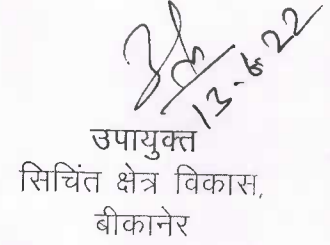 13.6.22
उपायुक्त
सिचिंत क्षेत्र विकास,
बीकानेर